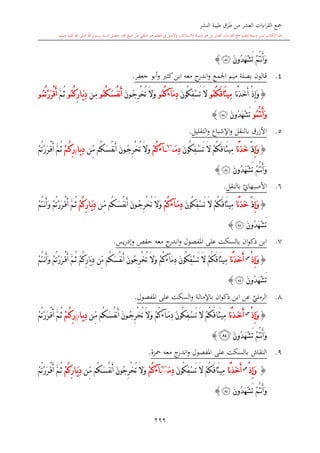 جمع القراءات العشر من طرق طيبة النشر
وَأَنتُمْ تَشْهَدُونَ ﴿٨٤﴾
٤. قالون بصلة ميم الجمع واندرج معه ابن كثير وأبو جعفر.
﴿ وَإِذْ أَخَذْنَا مِيثَاقَكُمُۥ لَا تَسْفِكُونَ دِمَآءَكُمُۥ وَلَا تُخْرِجُونَ أَنفُسَكُمُۥ مِن دِيَٰرِكُمُۥ ثُمَّ أَقْرَرْتُمُۥ
وَأَنتُمُۥ تَشْهَدُونَ ﴾
٥. الأزرق بالنقل والإشباع والتقليل.
﴿ وَإِذَ اخَذْنَا مِيثَاقَكُمْ لَا تَسْفِكُونَ دِمَآءَكُمْ وَلَا تُخْرِجُونَ أَنفُسَكُم مِّن دِيَٰرِكُمْ ثُمَّ أَقْرَرْتُمْ
وَأَنتُمْ تَشْهَدُونَ ﴾
٦. الأصبهاني بالنقل.
﴿ وَإِذَ اخَذْنَا مِيثَاقَكُمْ لَا تَسْفِكُونَ دِمَآءَكُمْ وَلَا تُخْرِجُونَ أَنفُسَكُم مِّن دِيَٰرِكُمْ ثُمَّ أَقْرَرْتُمْ وَأَنتُمْ
تَشْهَدُونَ ﴾
٧. ابن ذكوان بالسكت على المفصول واندرج معه حفص وإدريس.
﴿ وَإِذْ أَخَذْنَا مِيثَاقَكُمْ لَا تَسْفِكُونَ دِمَآءَكُمْ وَلَا تُخْرِجُونَ أَنفُسَكُم مِّن دِيَٰرِكُمْ ثُمَّ أَقْرَرْتُمْ وَأَنتُمْ
تَشْهَدُونَ ﴾
٨. الرملي عن ابن ذكوان بالإمالة والسكت على المفصول.
﴿ وَإِذْ أَخَذْنَا مِيثَاقَكُمْ لَا تَسْفِكُونَ دِمَآءَكُمْ وَلَا تُخْرِجُونَ أَنفُسَكُم مِّن دِيَٰرِكُمْ ثُمَّ أَقْرَرْتُمْ
وَأَنتُمْ تَشْهَدُونَ ﴾
٩. النقاش بالسكت على المفصول واندرج معه حمزة.
﴿ وَإِذْ أَخَذْنَا مِيثَاقَكُمْ لَا تَسْفِكُونَ دِمَآءَكُمْ وَلَا تُخْرِجُونَ أَنفُسَكُم مِّن دِيَٰرِكُمْ ثُمَّ أَقْرَرْتُمْ
وَأَنتُمْ تَشْهَدُونَ ﴾
٢٩٩